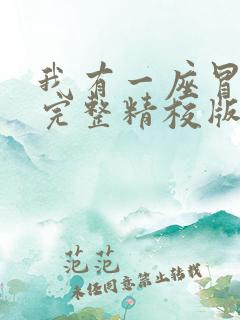 我有一座冒
完整精校版
范范
未经同意禁止转载